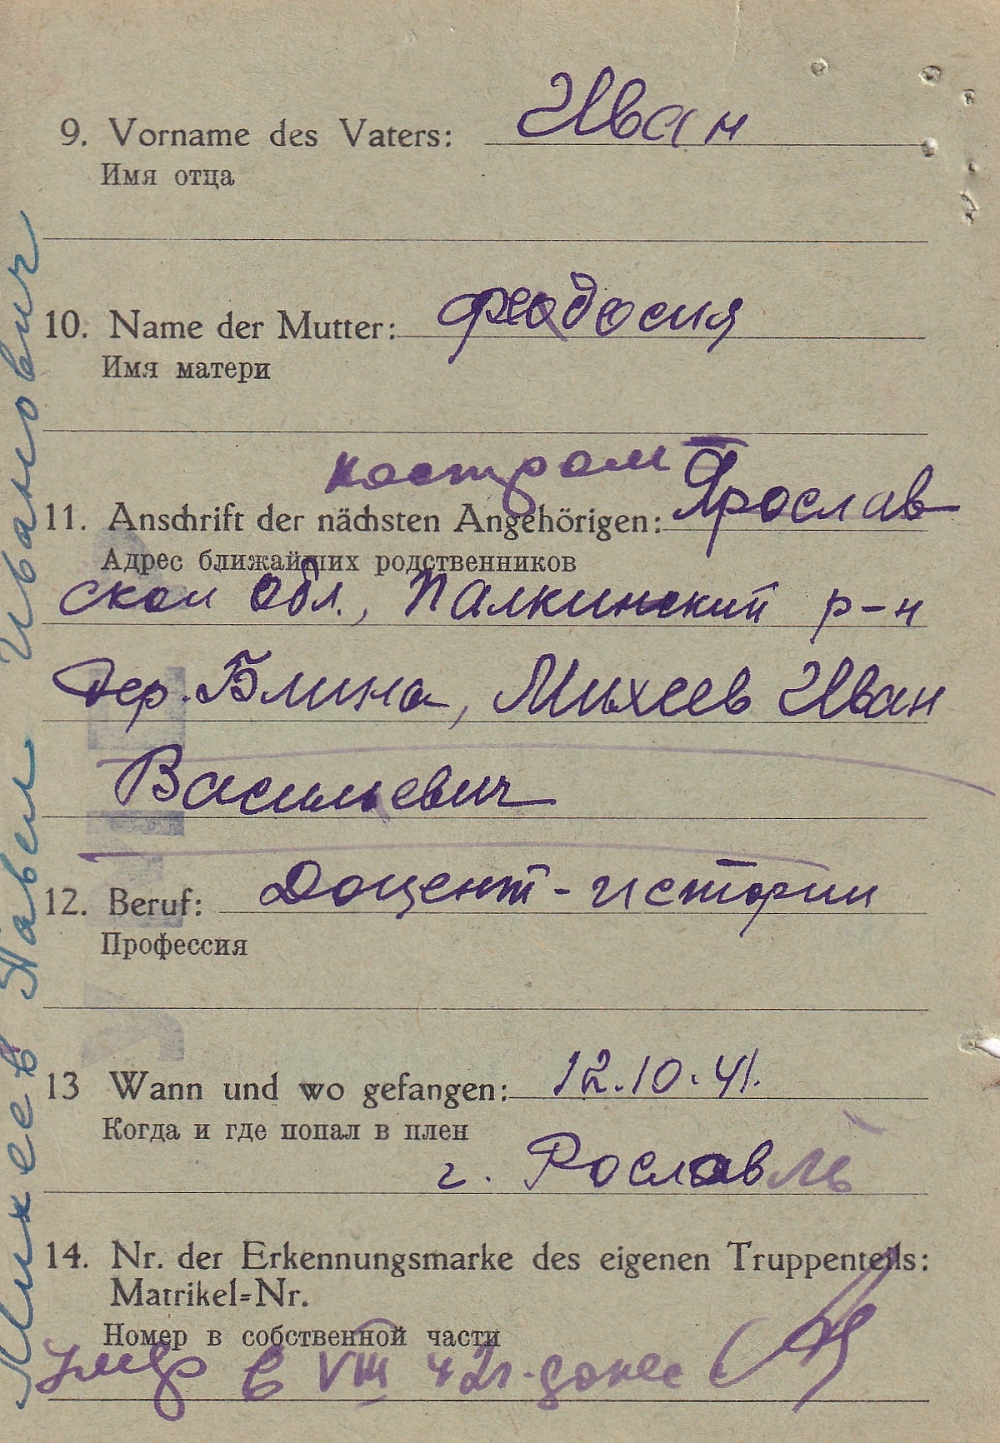 9. Vorname des Vaters: Иван
Имя отца
10. Name der Mutter: Феодосия
Имя матери
костром
11. Anschrift der nächsten Angehörigen: Ярослав
Адрес ближайших родственников
ской обл., Палкинский р-н
дер. Блина, Михеев Иван
Васильевич
12. Beruf: Доцент - истории
Профессия
13 Wann und wo gefangen: 12.10.41.
Когда и где попал в плен
г. Рославль
14. Nr. der Erkennungsmarke des eigenen Truppenteils:
Matrikel=Nr.
Номер в собственной части
умер в VIII 42г. донес
Михеев Павел Иванович